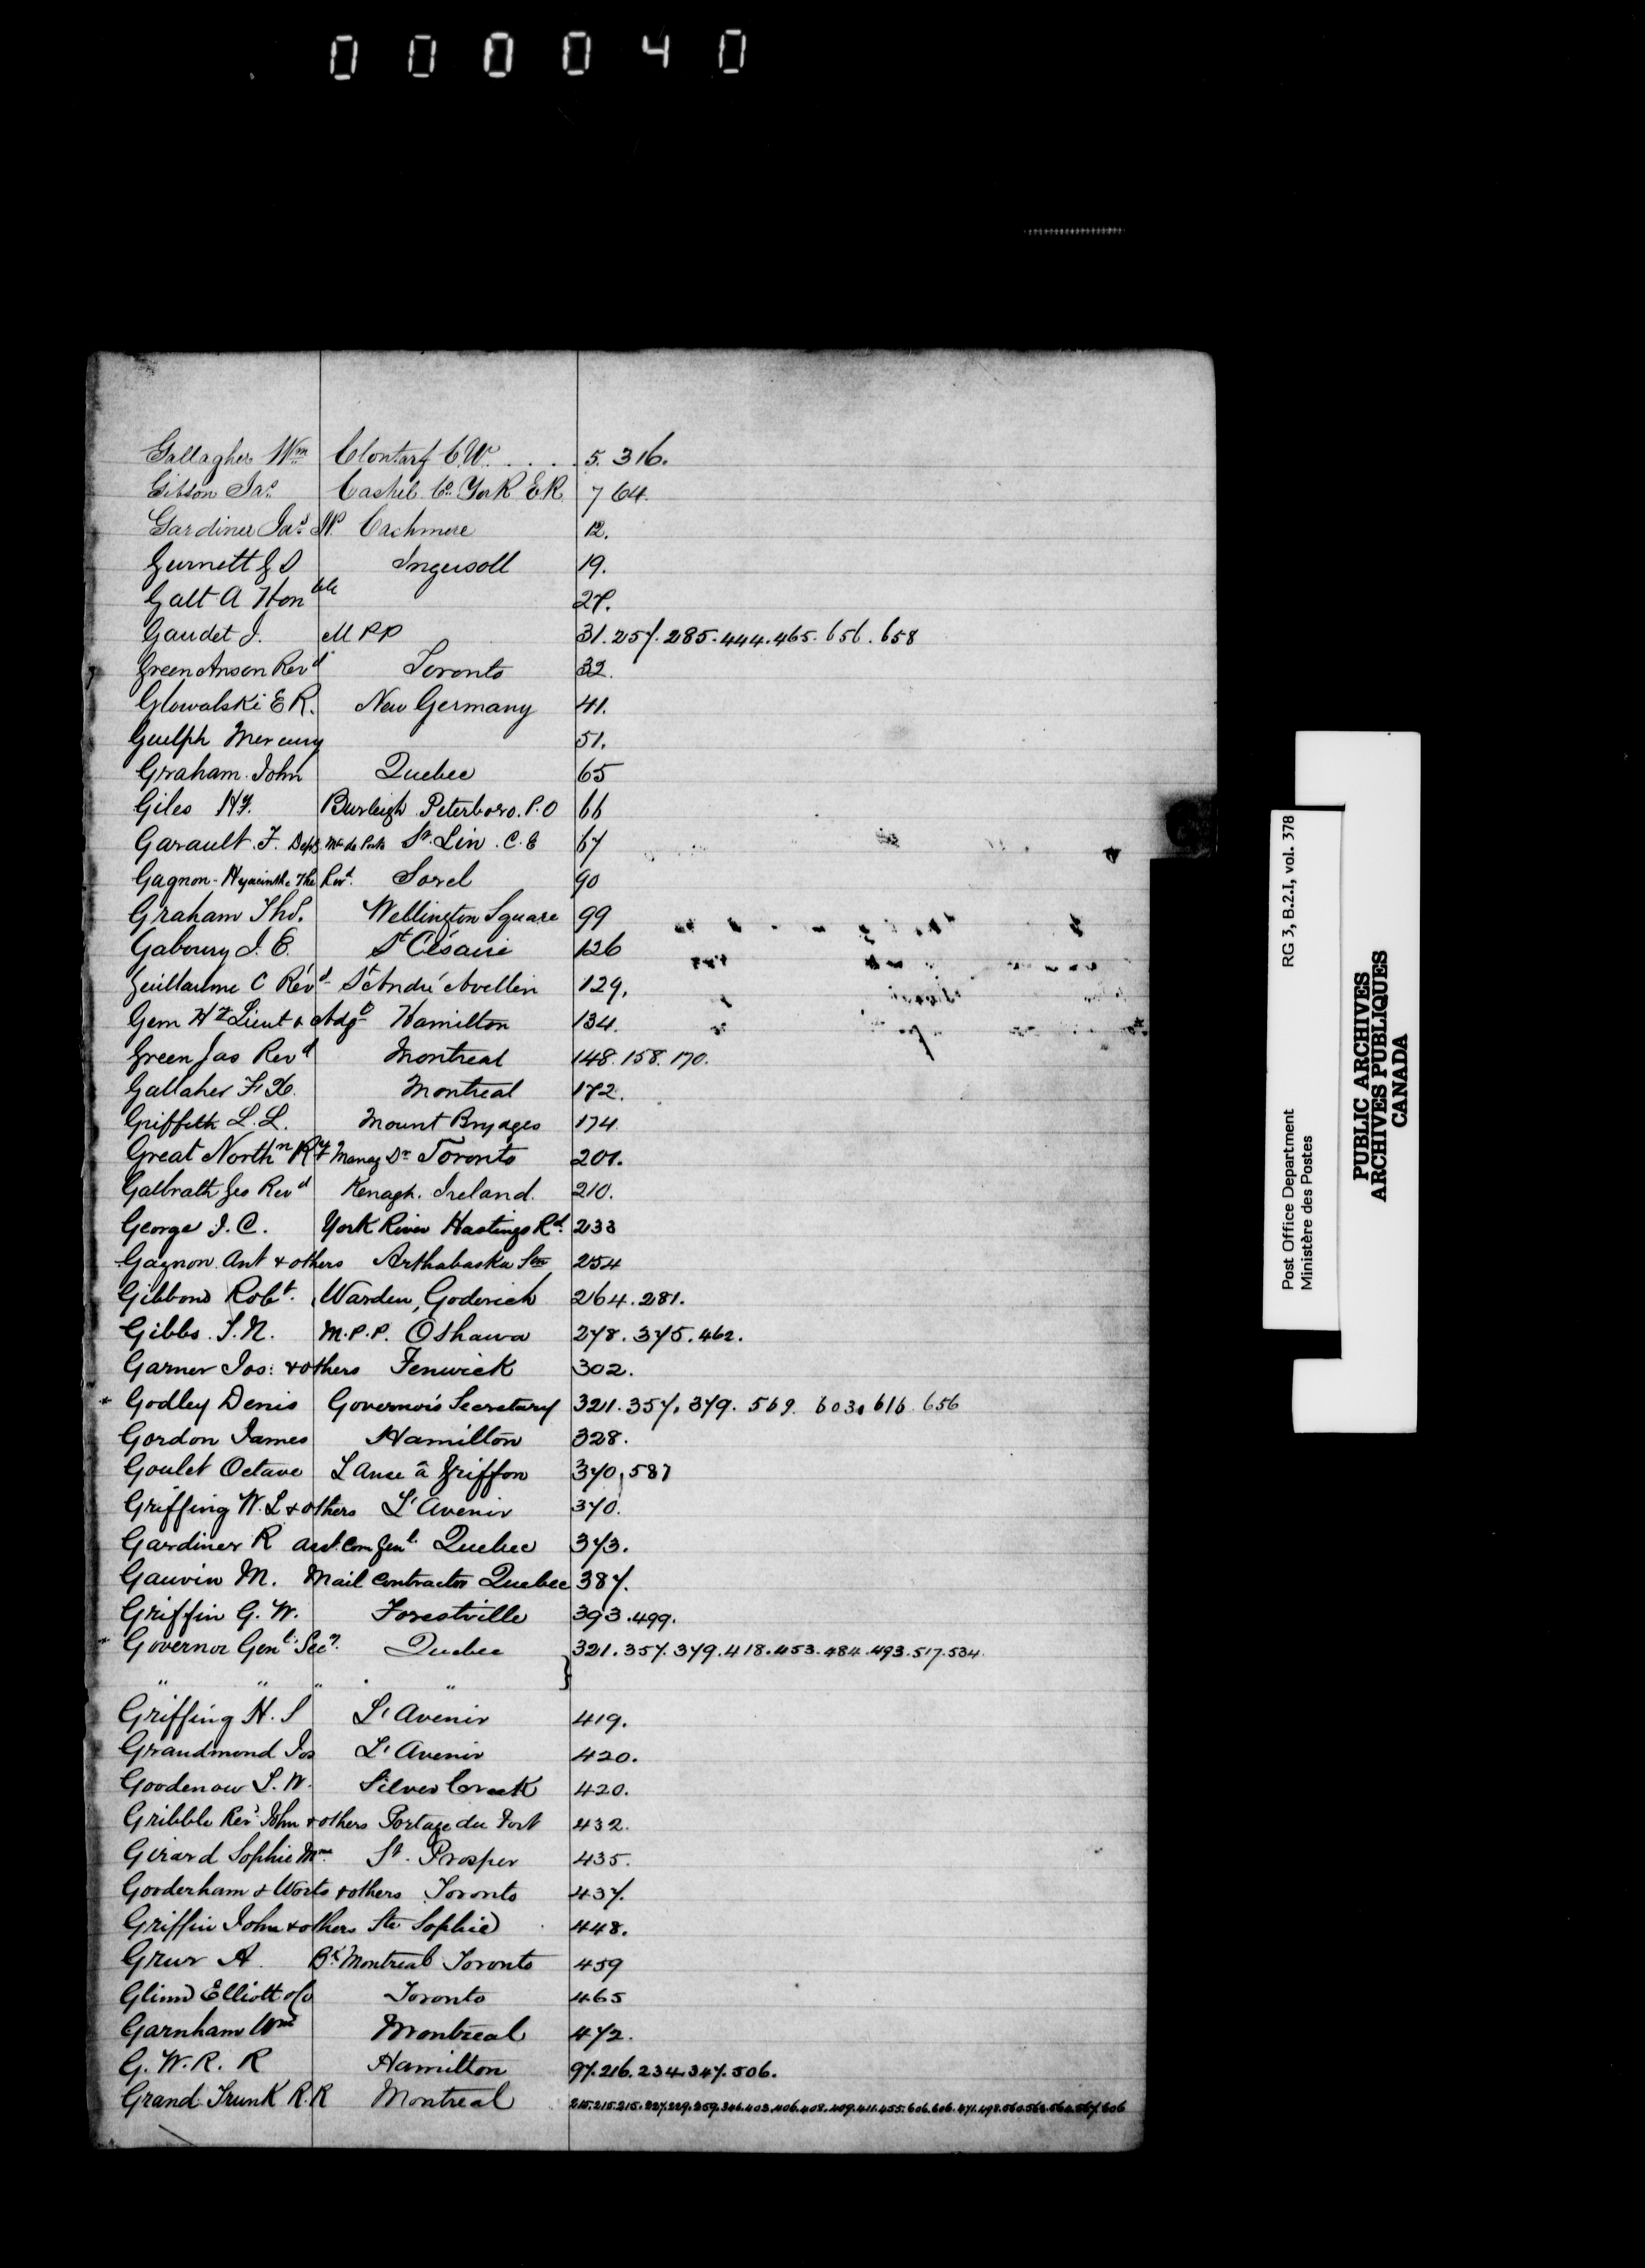 000040
Gallagher Wm Clontarf C.W. . . . . 5. 316.
Gibson Jas Cashel Co. York E.R. 7 64.
Gardiner Jas JP. Cachmere 12.
Gurnett G S Ingersoll 19.
Galt A Honble 27.
Gaudet J. M P P 31. 257. 285. 444. 465. 656. 658
Green Anson Revd Toronto 32.
Glowalski E R. New Germany 41.
Guelph Mercury 51.
Graham John Quebec 65
Giles Hy. Burleigh Peterboro. P.O 66
Garault F. St. Lin. C.E 67
Gagnon Hyacinthe The Revd. Sorel 90
Graham Thos. Wellington Square 99
Gaboury J. E. St Césaire 126
Guillaume C Revd St André Avellin 129.
Gem Hy Lieut & Adjt Hamilton 134.
Green Jas Revd Montreal 148. 158. 170.
Gallaher F. X. Montreal 172.
Griffith L. L. Mount Brydges 174
Great Northn Ry Manag Dr Toronto 201.
Galbrath Geo Revd Kenagh. Ireland. 210.
George J. C. York River Hastings Rd. 233
Gagnon Ant & others Arthabaska Stn 254
Gibbons Robt. Warden, Goderich 264. 281.
Gibbs T. N. M.P.P. Oshawa 278. 375. 462.
Garner Jos: & others Fenwick 302.
* Godley Denis Governor's Secretary 321. 357. 379. 569. 603. 616. 656
Gordon James Hamilton 328.
Goulet Octave L'Anse à Griffon 340, 587
Griffing W. L & others L'Avenir 370.
Gardiner R Asst. Com Genl. Quebec 373.
Gauvin M. Mail Contractor Quebec 387.
Griffin G. W. Forestville 393. 499.
* Governor Genl: Secy. Quebec 321. 357. 379. 418. 453. 484. 493. 517. 534.
" " " " }
Griffing H. S L'Avenir 419.
Grandmond Jos L'Avenir 420.
Goodenow S. W. Silver Creek 420.
Gribble Revd. John & others Portage du Fort 432.
Girard Sophie Mme. St. Prosper 435.
Gooderham & Worts & others Toronto 437.
Griffin John & others Ste Sophie 448.
Greer A. Bk. Montreal Toronto 459
Glinn Elliott Toronto 465
Garnham Wm Montreal 472.
G. W. R. R Hamilton 97. 216. 234. 347. 506.
Grand Trunk R. R Montreal
Post Office Department RG 3, B.2.I, vol. 378
Ministère des Postes
PUBLIC ARCHIVES
ARCHIVES PUBLIQUES
CANADA